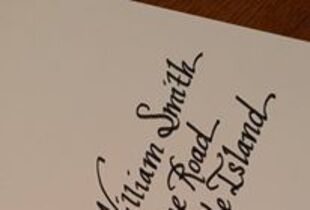 William Smith
Road
Island